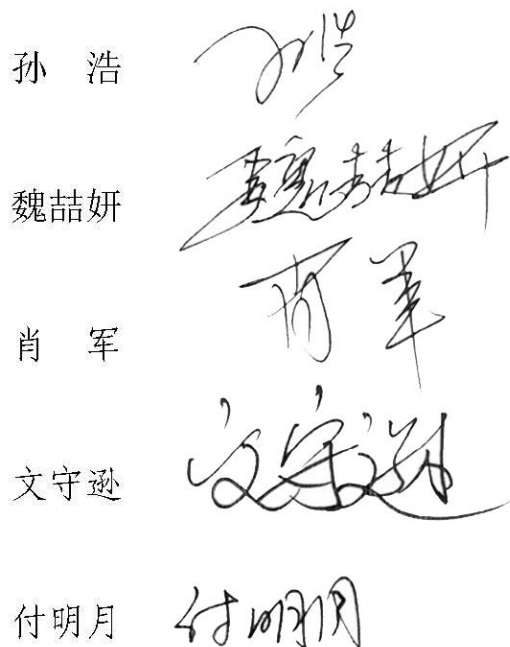 孙 浩 孙浩
魏喆妍 魏喆妍
肖 军 肖军
文守逊 文守逊
付明月 付明月